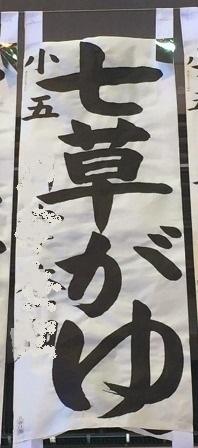 七草がゆ
小五